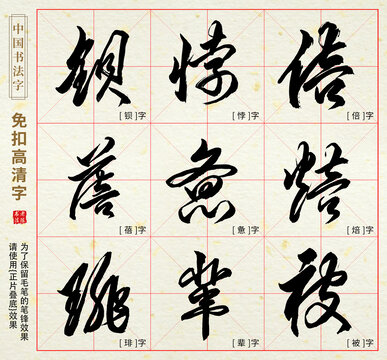 中国书法字
免扣高清字
为了保留毛笔的笔锋效果
请使用[正片叠底]效果
钡 悖 倍
[钡]字 [悖]字 [倍]字
蓓 惫 焙
[蓓]字 [惫]字 [焙]字
琲 辈 被
[琲]字 [辈]字 [被]字